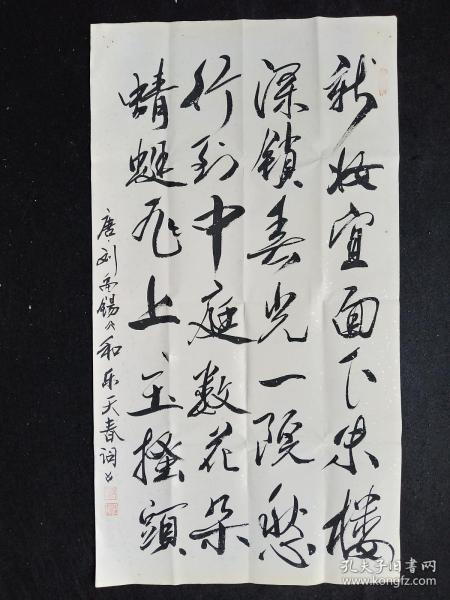 新妆宜面下朱楼
深锁春光一院愁
行到中庭数花朵
蜻蜓飞上玉搔頭
唐刘禹锡《和乐天春词》
孔夫子旧书网
www.kongfz.com